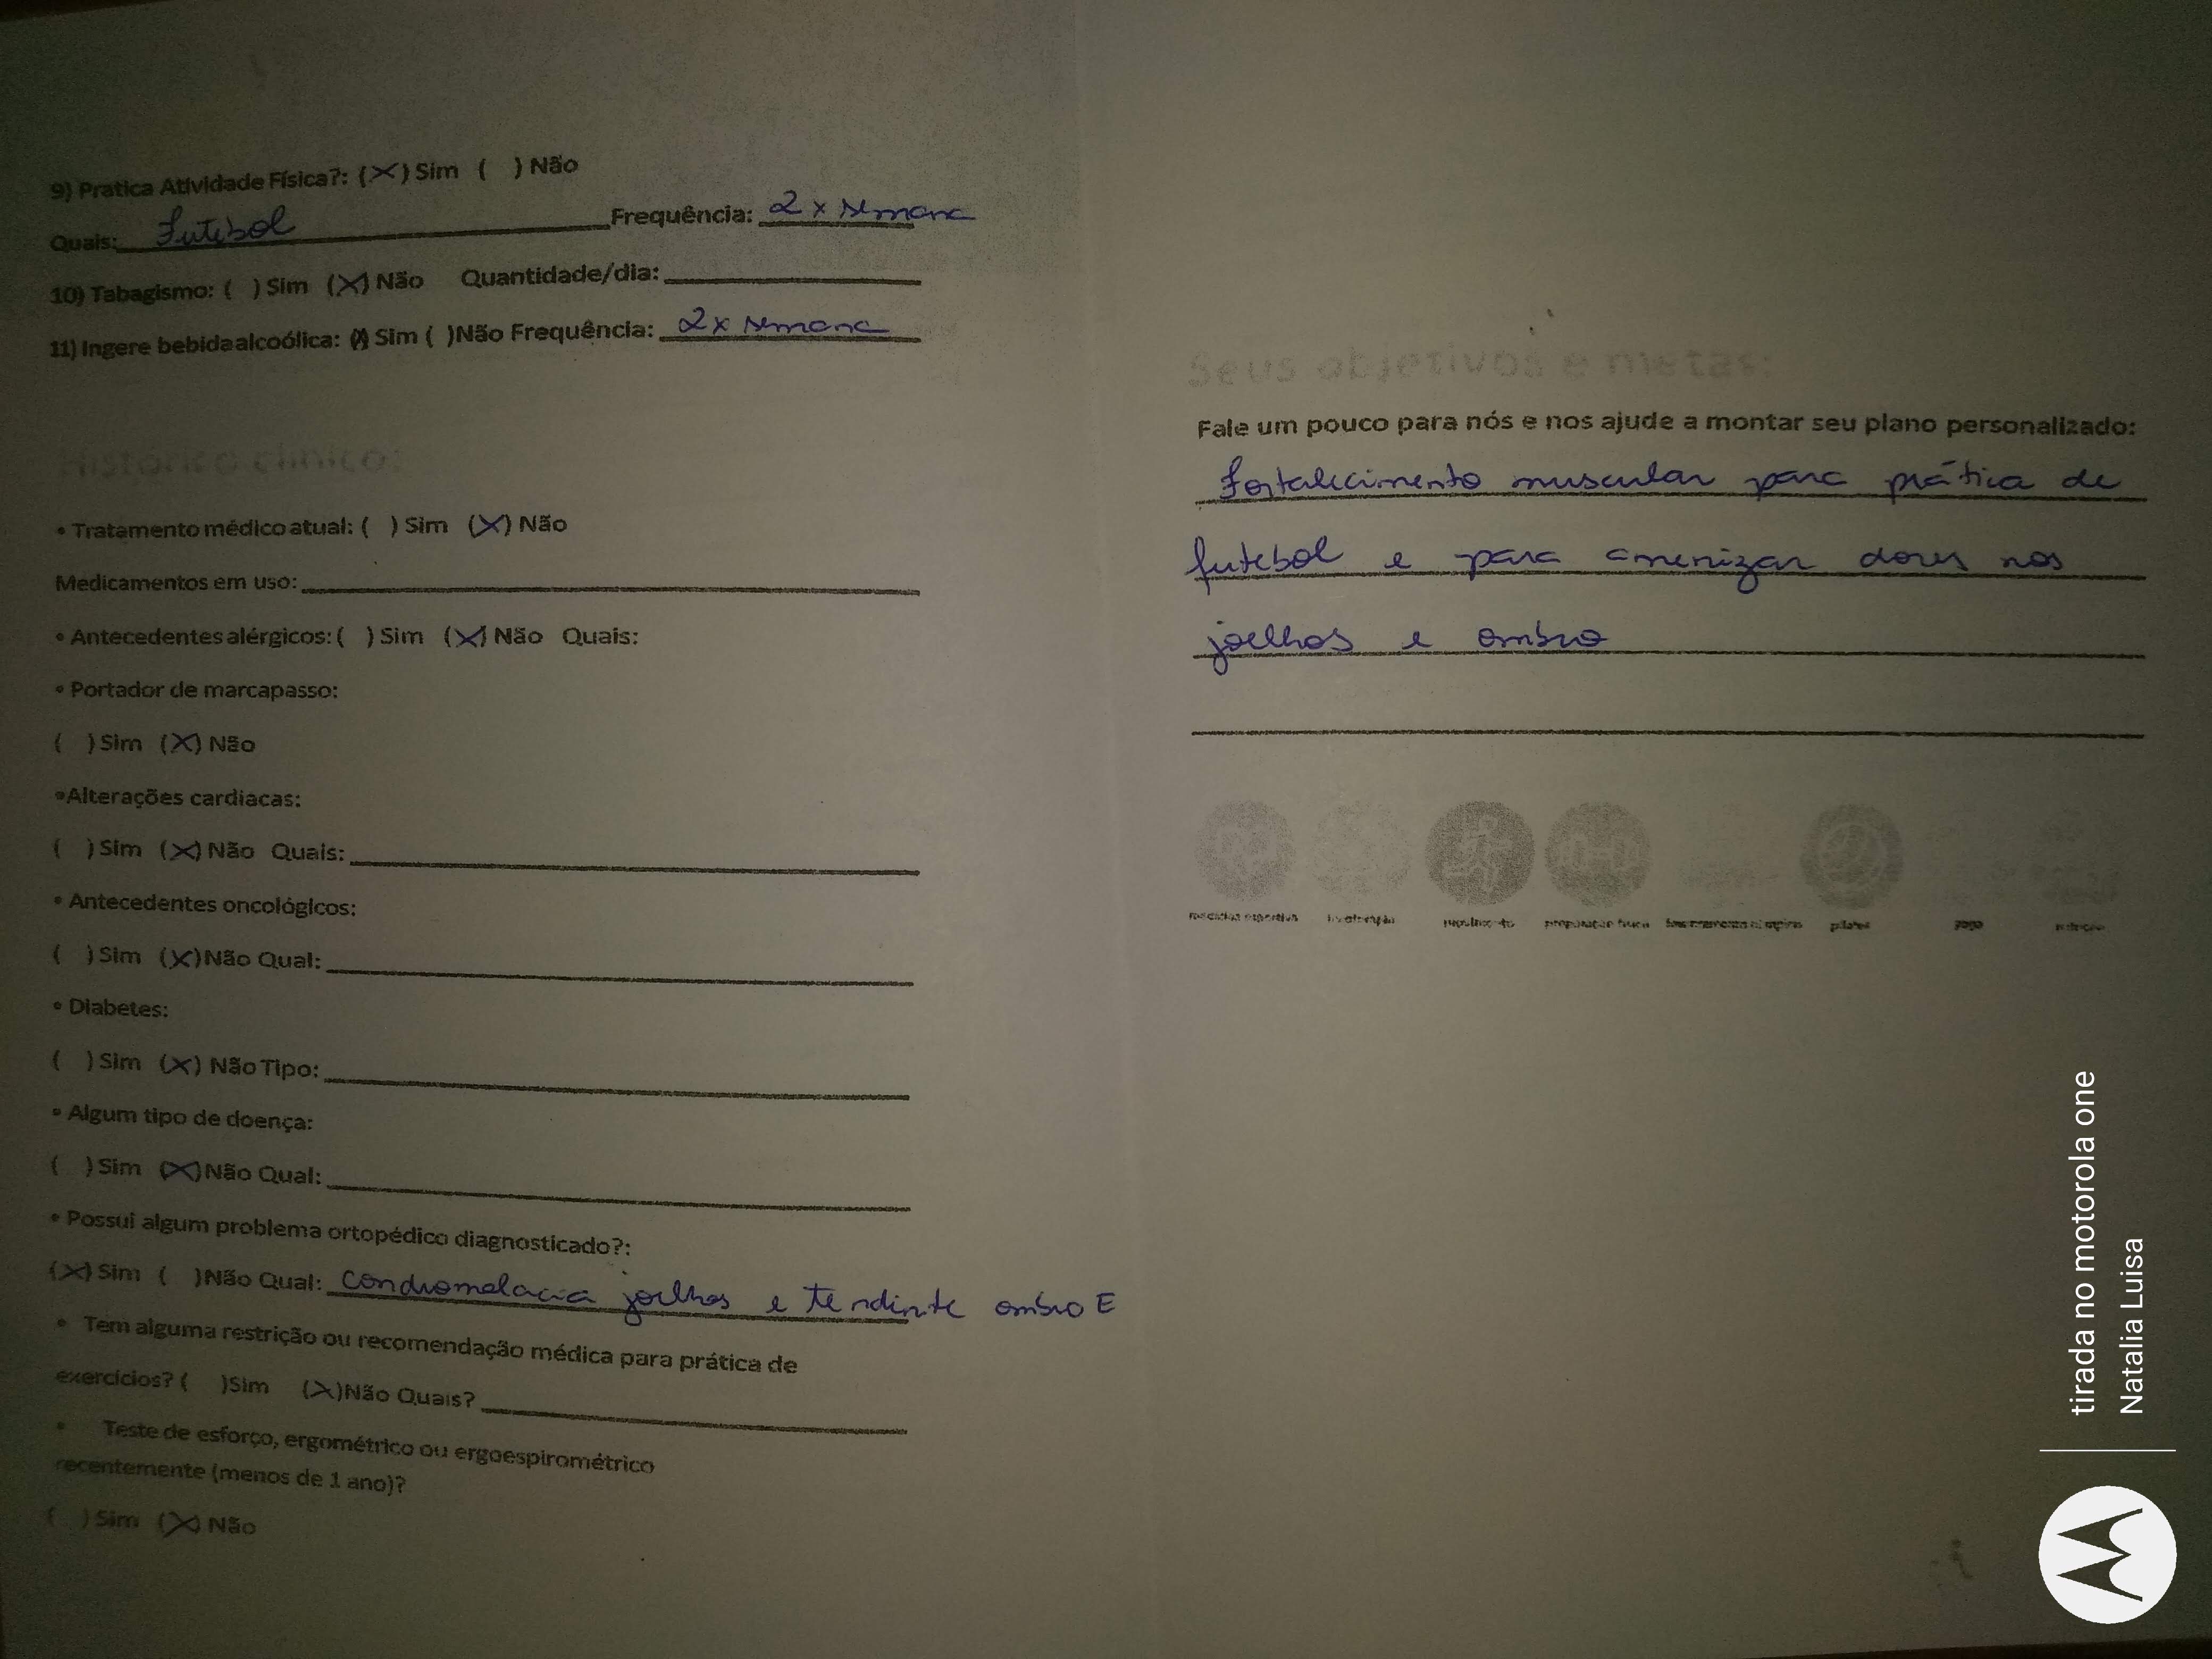 9) Pratica Atividade Física?: (X) Sim ( ) Não
Quais: futebol Frequência: 2 x semana
10) Tabagismo: ( ) Sim (X) Não Quantidade/dia:
11) Ingere bebida alcoólica: (X) Sim ( )Não Frequência: 2x semana
Histórico clínico:
• Tratamento médico atual: ( ) Sim (X) Não
Medicamentos em uso:
• Antecedentes alérgicos: ( ) Sim (X) Não Quais:
• Portador de marcapasso:
( ) Sim (X) Não
•Alterações cardiacas:
( ) Sim (X) Não Quais:
• Antecedentes oncológicos:
( ) Sim (X)Não Qual:
• Diabetes:
( ) Sim (X) Não Tipo:
• Algum tipo de doença:
( ) Sim (X)Não Qual:
• Possui algum problema ortopédico diagnosticado?:
(X) Sim ( )Não Qual: condromalacia joelhos e tendinite ombro E
• Tem alguma restrição ou recomendação médica para prática de
exercícios? ( )Sim (X)Não Quais?
• Teste de esforço, ergométrico ou ergoespirométrico
recentemente (menos de 1 ano)?
( ) Sim (X) Não
Seus objetivos e metas:
Fale um pouco para nós e nos ajude a montar seu plano personalizado:
fortalecimento muscular para prática de
futebol e para amenizar dores nos
joelhos e ombro
pilates
yoga
tirada no motorola one
Natalia Luisa